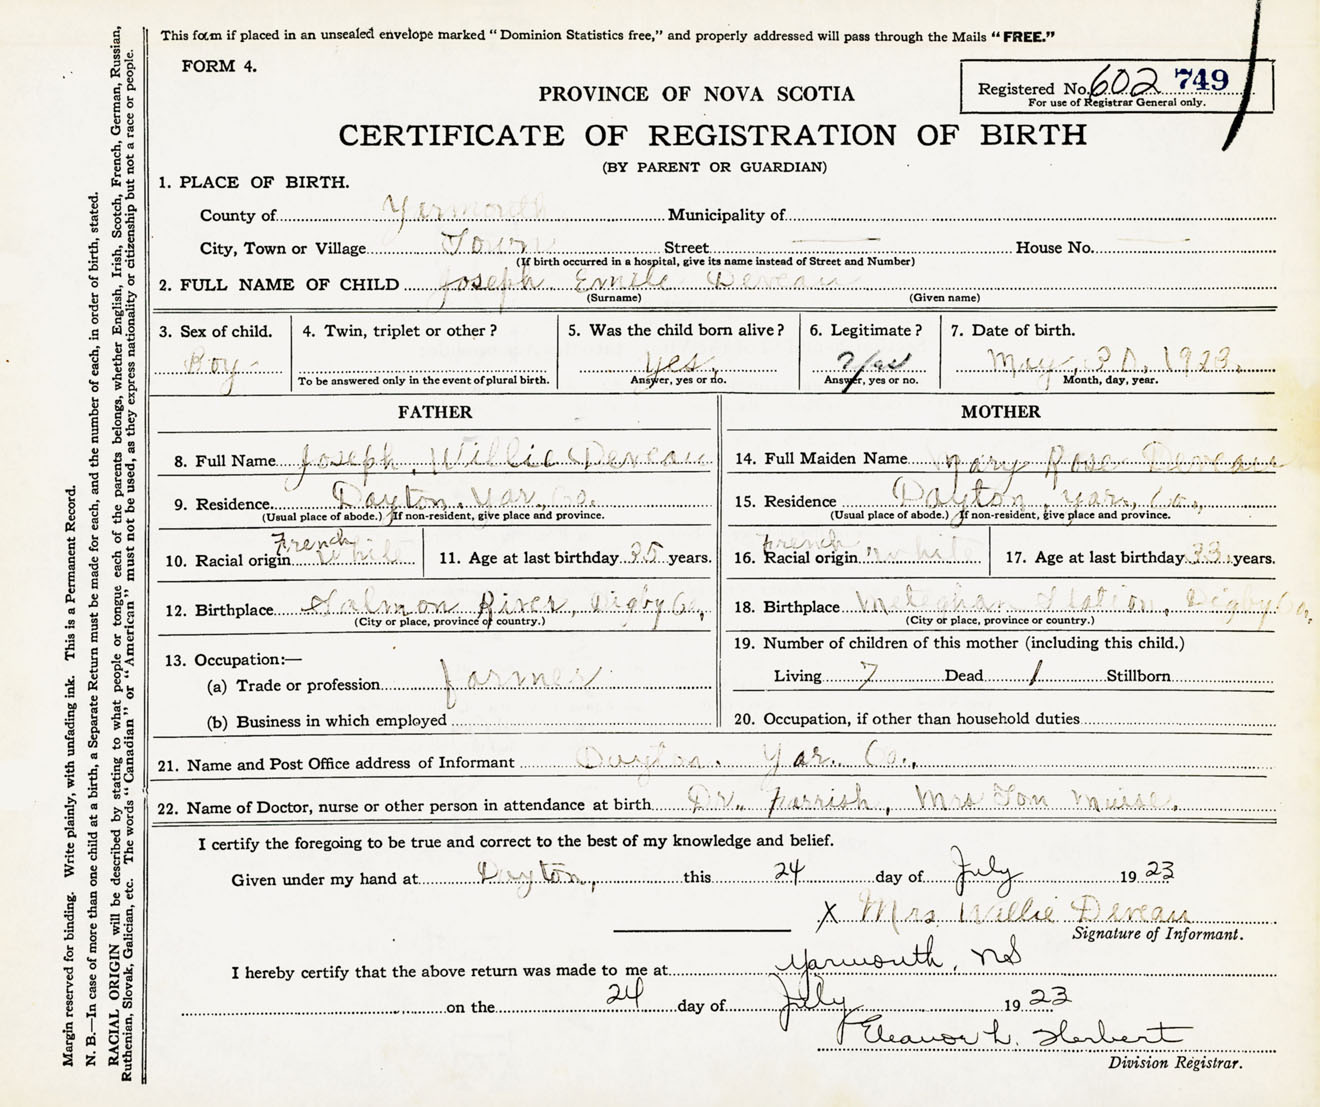 This form if placed in an unsealed envelope marked "Dominion Statistics free," and properly addressed will pass through the Mails "FREE."
FORM 4.
Registered No. 602 749
For use of Registrar General only.
PROVINCE OF NOVA SCOTIA
CERTIFICATE OF REGISTRATION OF BIRTH
(BY PARENT OR GUARDIAN)
1. PLACE OF BIRTH.
County of Yarmouth Municipality of
City, Town or Village Town Street — House No. —
(If birth occurred in a hospital, give its name instead of Street and Number)
2. FULL NAME OF CHILD Joseph Emile Deveau
(Surname) (Given name)
3. Sex of child. 4. Twin, triplet or other? 5. Was the child born alive? 6. Legitimate? 7. Date of birth.
Boy - yes, Yes May, 30, 1923.
To be answered only in the event of plural birth. Answer, yes or no. Answer, yes or no. Month, day, year.
FATHER
8. Full Name Joseph, Willie Deveau
9. Residence Dayton, Yar., Co.
(Usual place of abode.) If non-resident, give place and province.
French
10. Racial origin White 11. Age at last birthday 35 years.
12. Birthplace Salmon River, Digby Co.,
(City or place, province or country.)
13. Occupation:—
(a) Trade or profession farmer
(b) Business in which employed
MOTHER
14. Full Maiden Name Mary Rose Deveau
15. Residence Dayton, Yar., Co.,
(Usual place of abode.) If non-resident, give place and province.
French
16. Racial origin White 17. Age at last birthday 33 years.
18. Birthplace Meteghan Station, Digby Co,
(City or place, province or country.)
19. Number of children of this mother (including this child.)
Living 7 Dead 1 Stillborn
20. Occupation, if other than household duties
21. Name and Post Office address of Informant Dayton. Yar. Co.,
22. Name of Doctor, nurse or other person in attendance at birth Dr. Farrish, Mrs Tom Muise.
I certify the foregoing to be true and correct to the best of my knowledge and belief.
Given under my hand at Dayton, this 24 day of July 1923
X Mrs Willie Deveau
Signature of Informant.
I hereby certify that the above return was made to me at Yarmouth, NS
on the 24 day of July 1923
Eleanor L. Herbert
Division Registrar.
Margin reserved for binding. Write plainly, with unfading ink. This is a Permanent Record.
N. B.—In case of more than one child at a birth, a Separate Return must be made for each, and the number of each, in order of birth, stated.
RACIAL ORIGIN will be described by stating to what people or tongue each of the parents belongs, whether English, Irish, Scotch, French, German, Russian,
Ruthenian, Slovak, Galician, etc. The words "Canadian" or "American" must not be used, as they express nationality or citizenship but not a race or people.